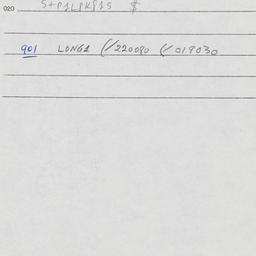 020 S+P1LPK91S $
901 LONGA (/220090 (/019030